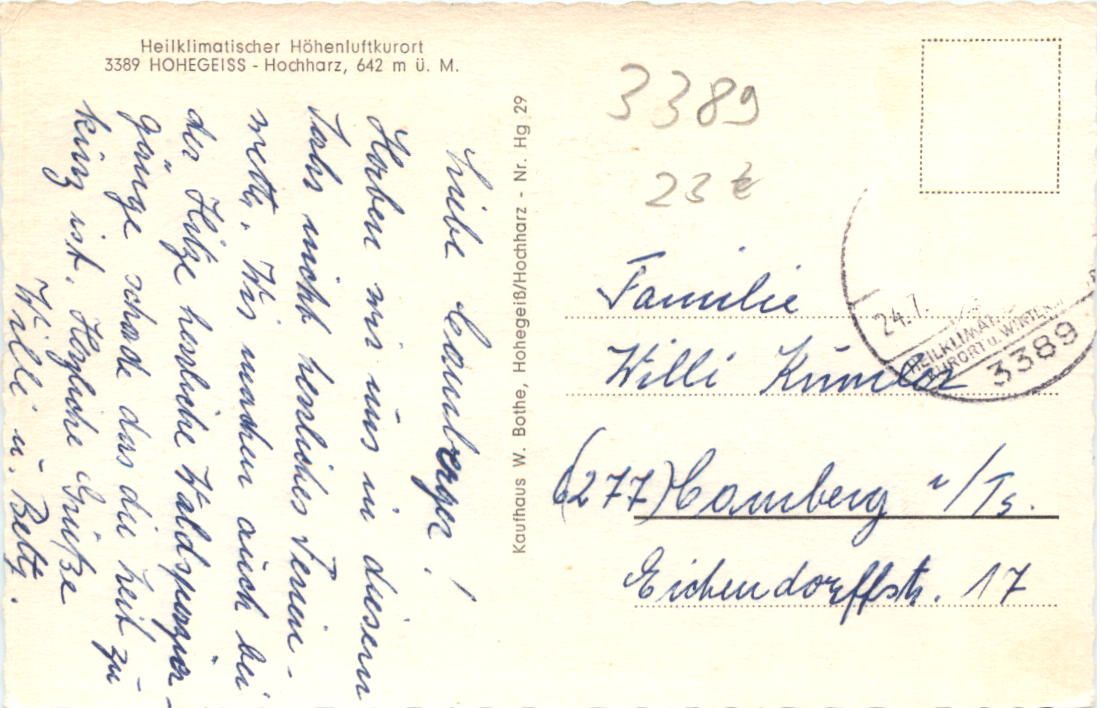 Heilklimatischer Höhenluftkurort
3389 HOHEGEISS - Hochharz, 642 m ü. M.
Liebe Camberger!
Haben wir uns in diesem
Jahr nicht herrliches Ferien-
wetter. Wir machen auch bei
der Hitze herrliche Waldspazier-
gänge schade das die Zeit zu
kurz ist. Herzliche Grüße
Willi u. Betty.
Kaufhaus W. Bothe, Hohegeiß/Hochharz - Nr. Hg 29
3389
23 €
24.7.
HEILKLIMAT
KURORT u. WINTER
3389
Familie
Willi
(6277) Camberg i/Ts.
Eichendorffstr. 17